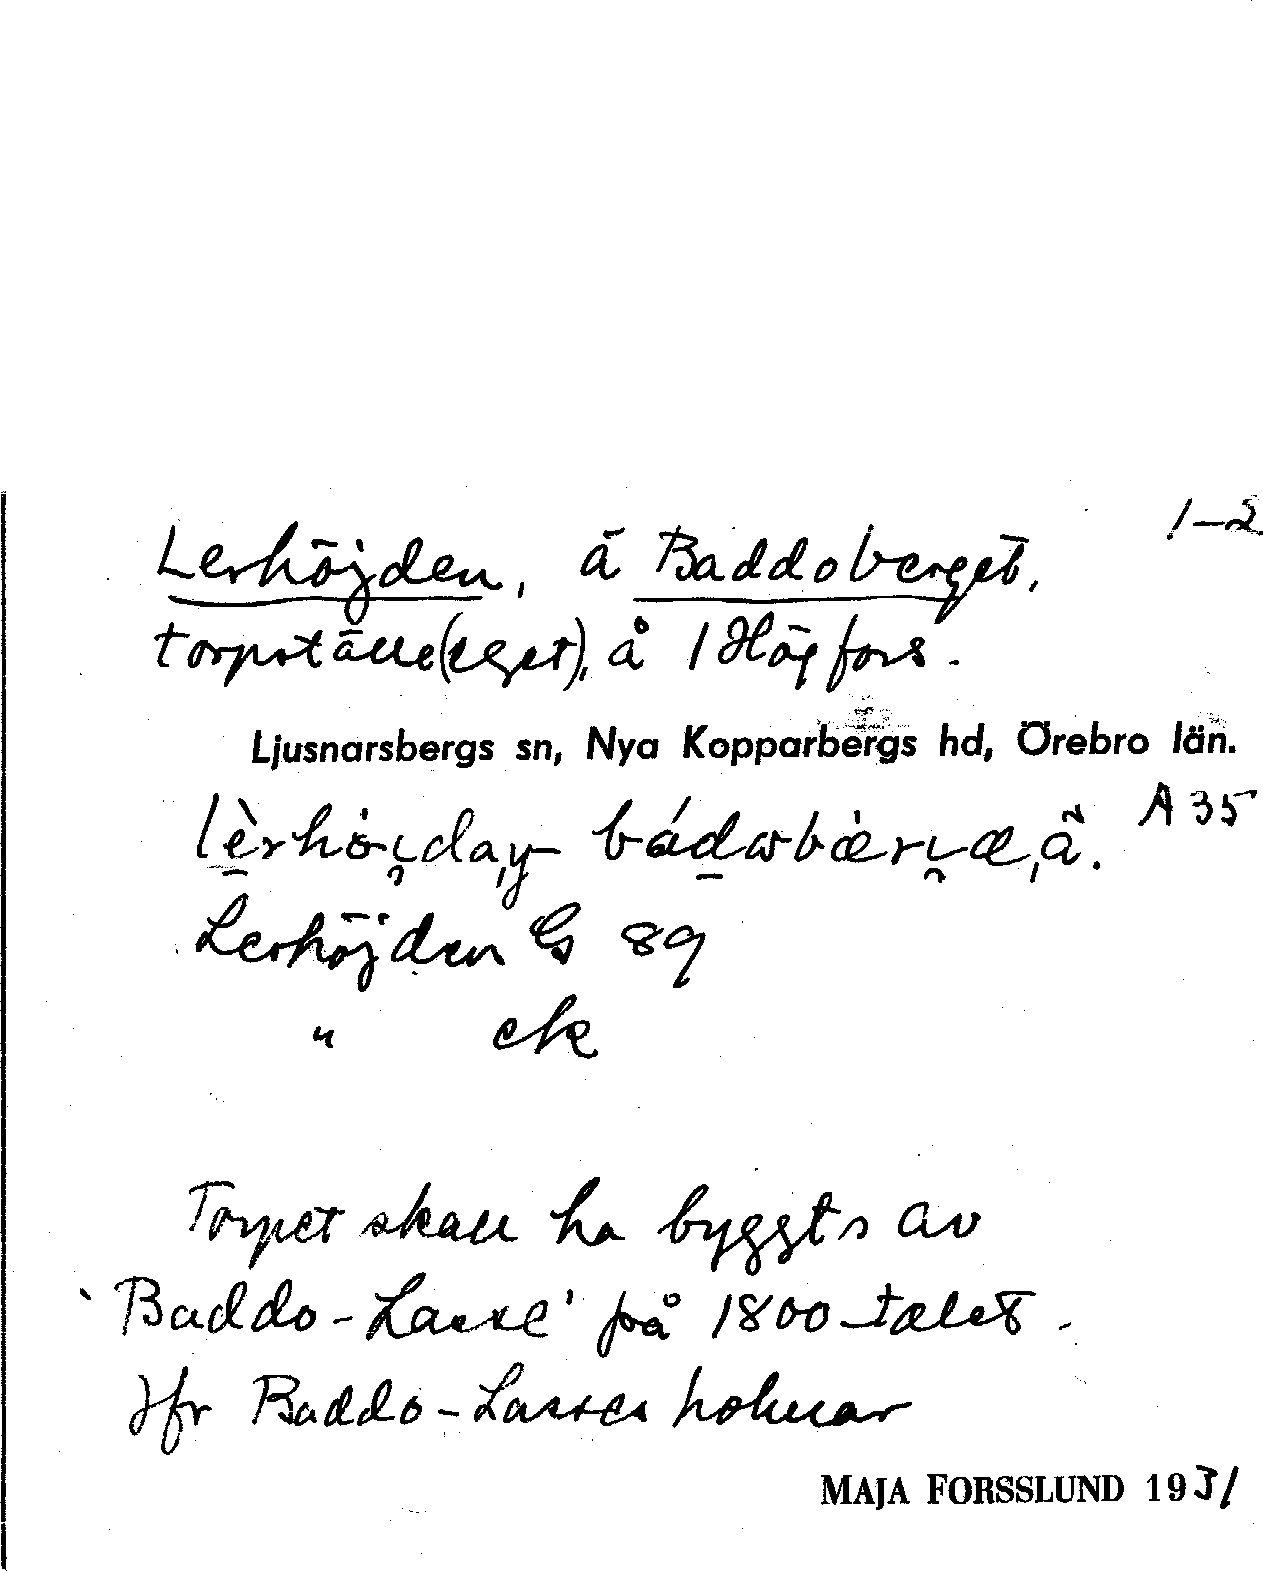 1-2
Lerhöjden, ä Baddoberget,
torpställe (eget), å 1 Högfors.
Ljusnarsbergs sn, Nya Kopparbergs hd, Örebro län.
A 35
Lerhöjden G 89
" ek
Torpet skall ha byggts av
'Baddo-Lasse' på 1800-talet.
Jfr Baddo-Lasses holmar
MAJA FORSSLUND 1931